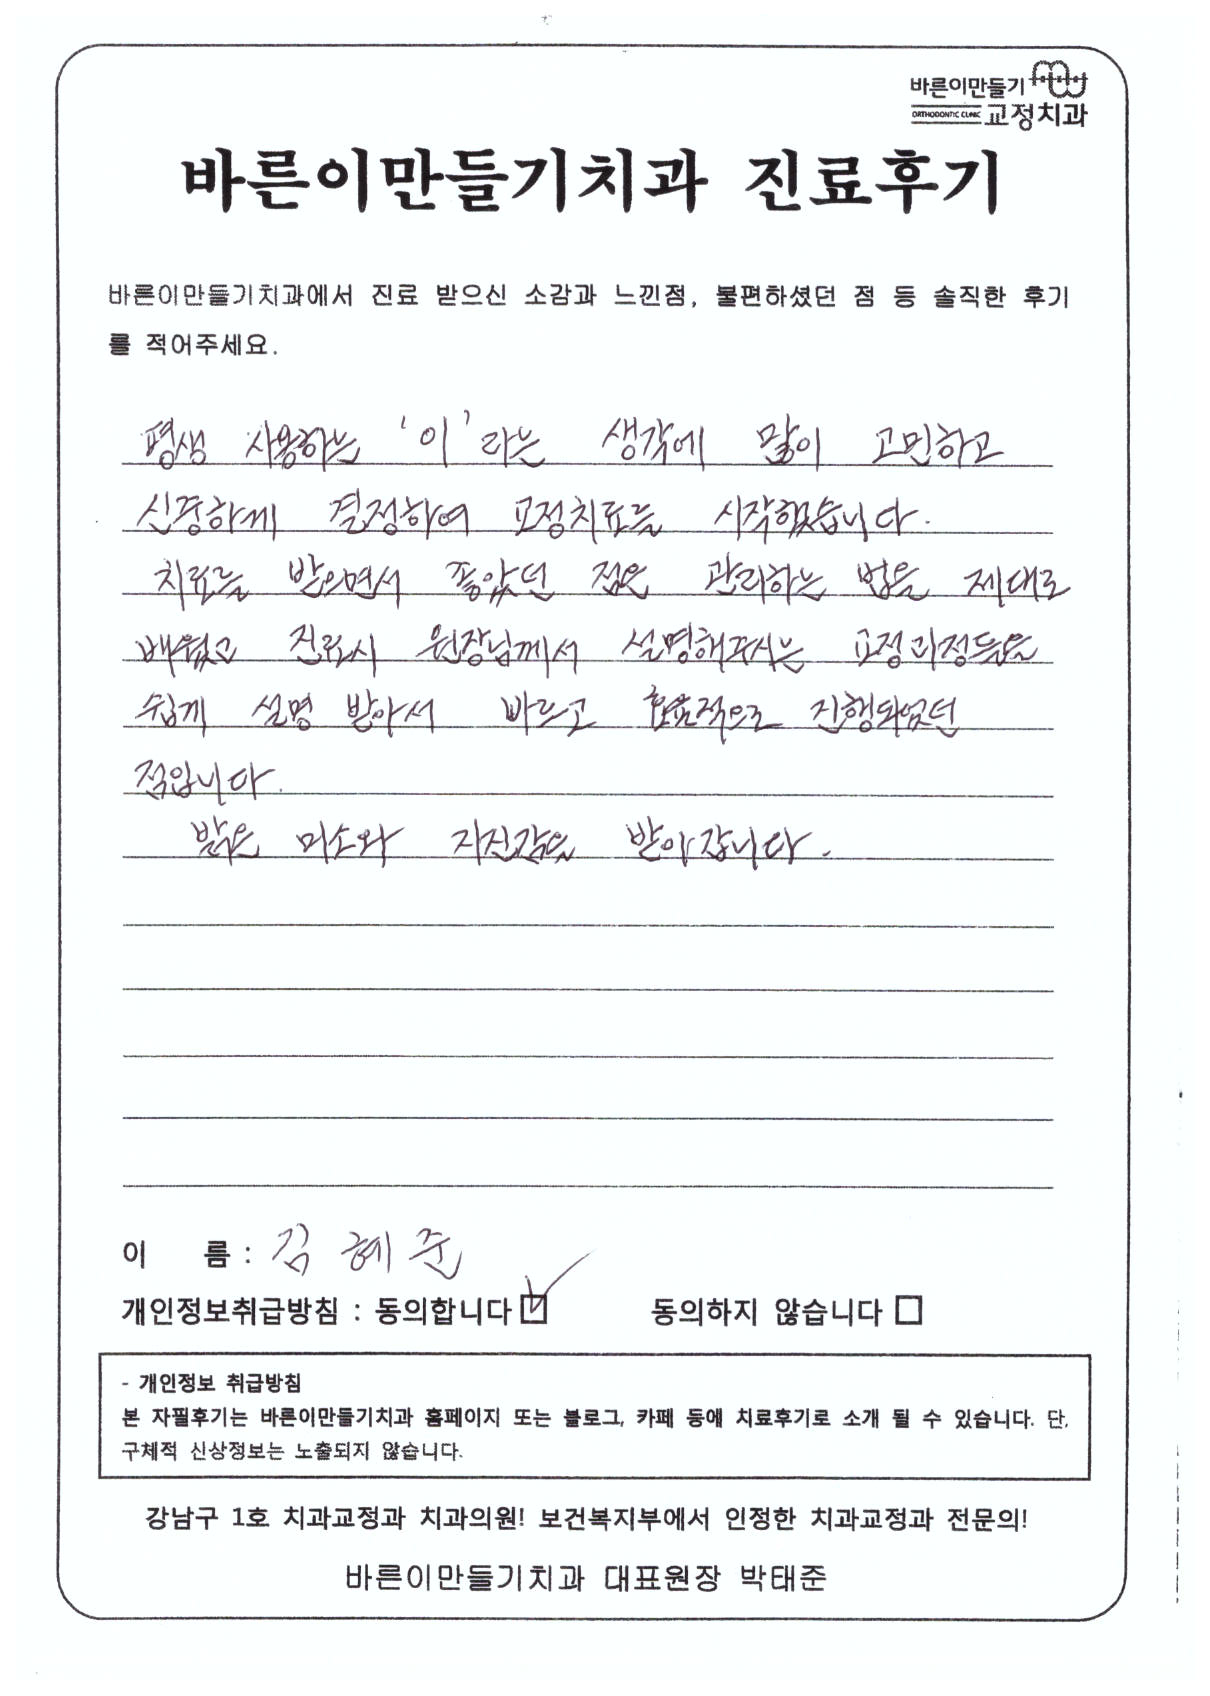 바른이만들기
ORTHODONTIC CLINIC 교정치과
바른이만들기치과 진료후기
바른이만들기치과에서 진료 받으신 소감과 느낀점, 불편하셨던 점 등 솔직한 후기
를 적어주세요.
평생 사용하는 '이'라는 생각에 많이 고민하고
신중하게 결정하여 교정치료를 시작했습니다.
치료를 받으면서 좋았던 점은 관리하는 법을 제대로
배웠고 진료시 원장님께서 설명해주시는 교정과정등을
쉽게 설명 받아서 바르고 효율적으로 진행되었던
점입니다.
밝은 미소와 자신감을 받아갑니다.
이 름 : 김혜준
개인정보취급방침 : 동의합니다 ☑ 동의하지 않습니다 □
- 개인정보 취급방침
본 자필후기는 바른이만들기치과 홈페이지 또는 블로그, 카페 등에 치료후기로 소개 될 수 있습니다. 단,
구체적 신상정보는 노출되지 않습니다.
강남구 1호 치과교정과 치과의원! 보건복지부에서 인정한 치과교정과 전문의!
바른이만들기치과 대표원장 박태준